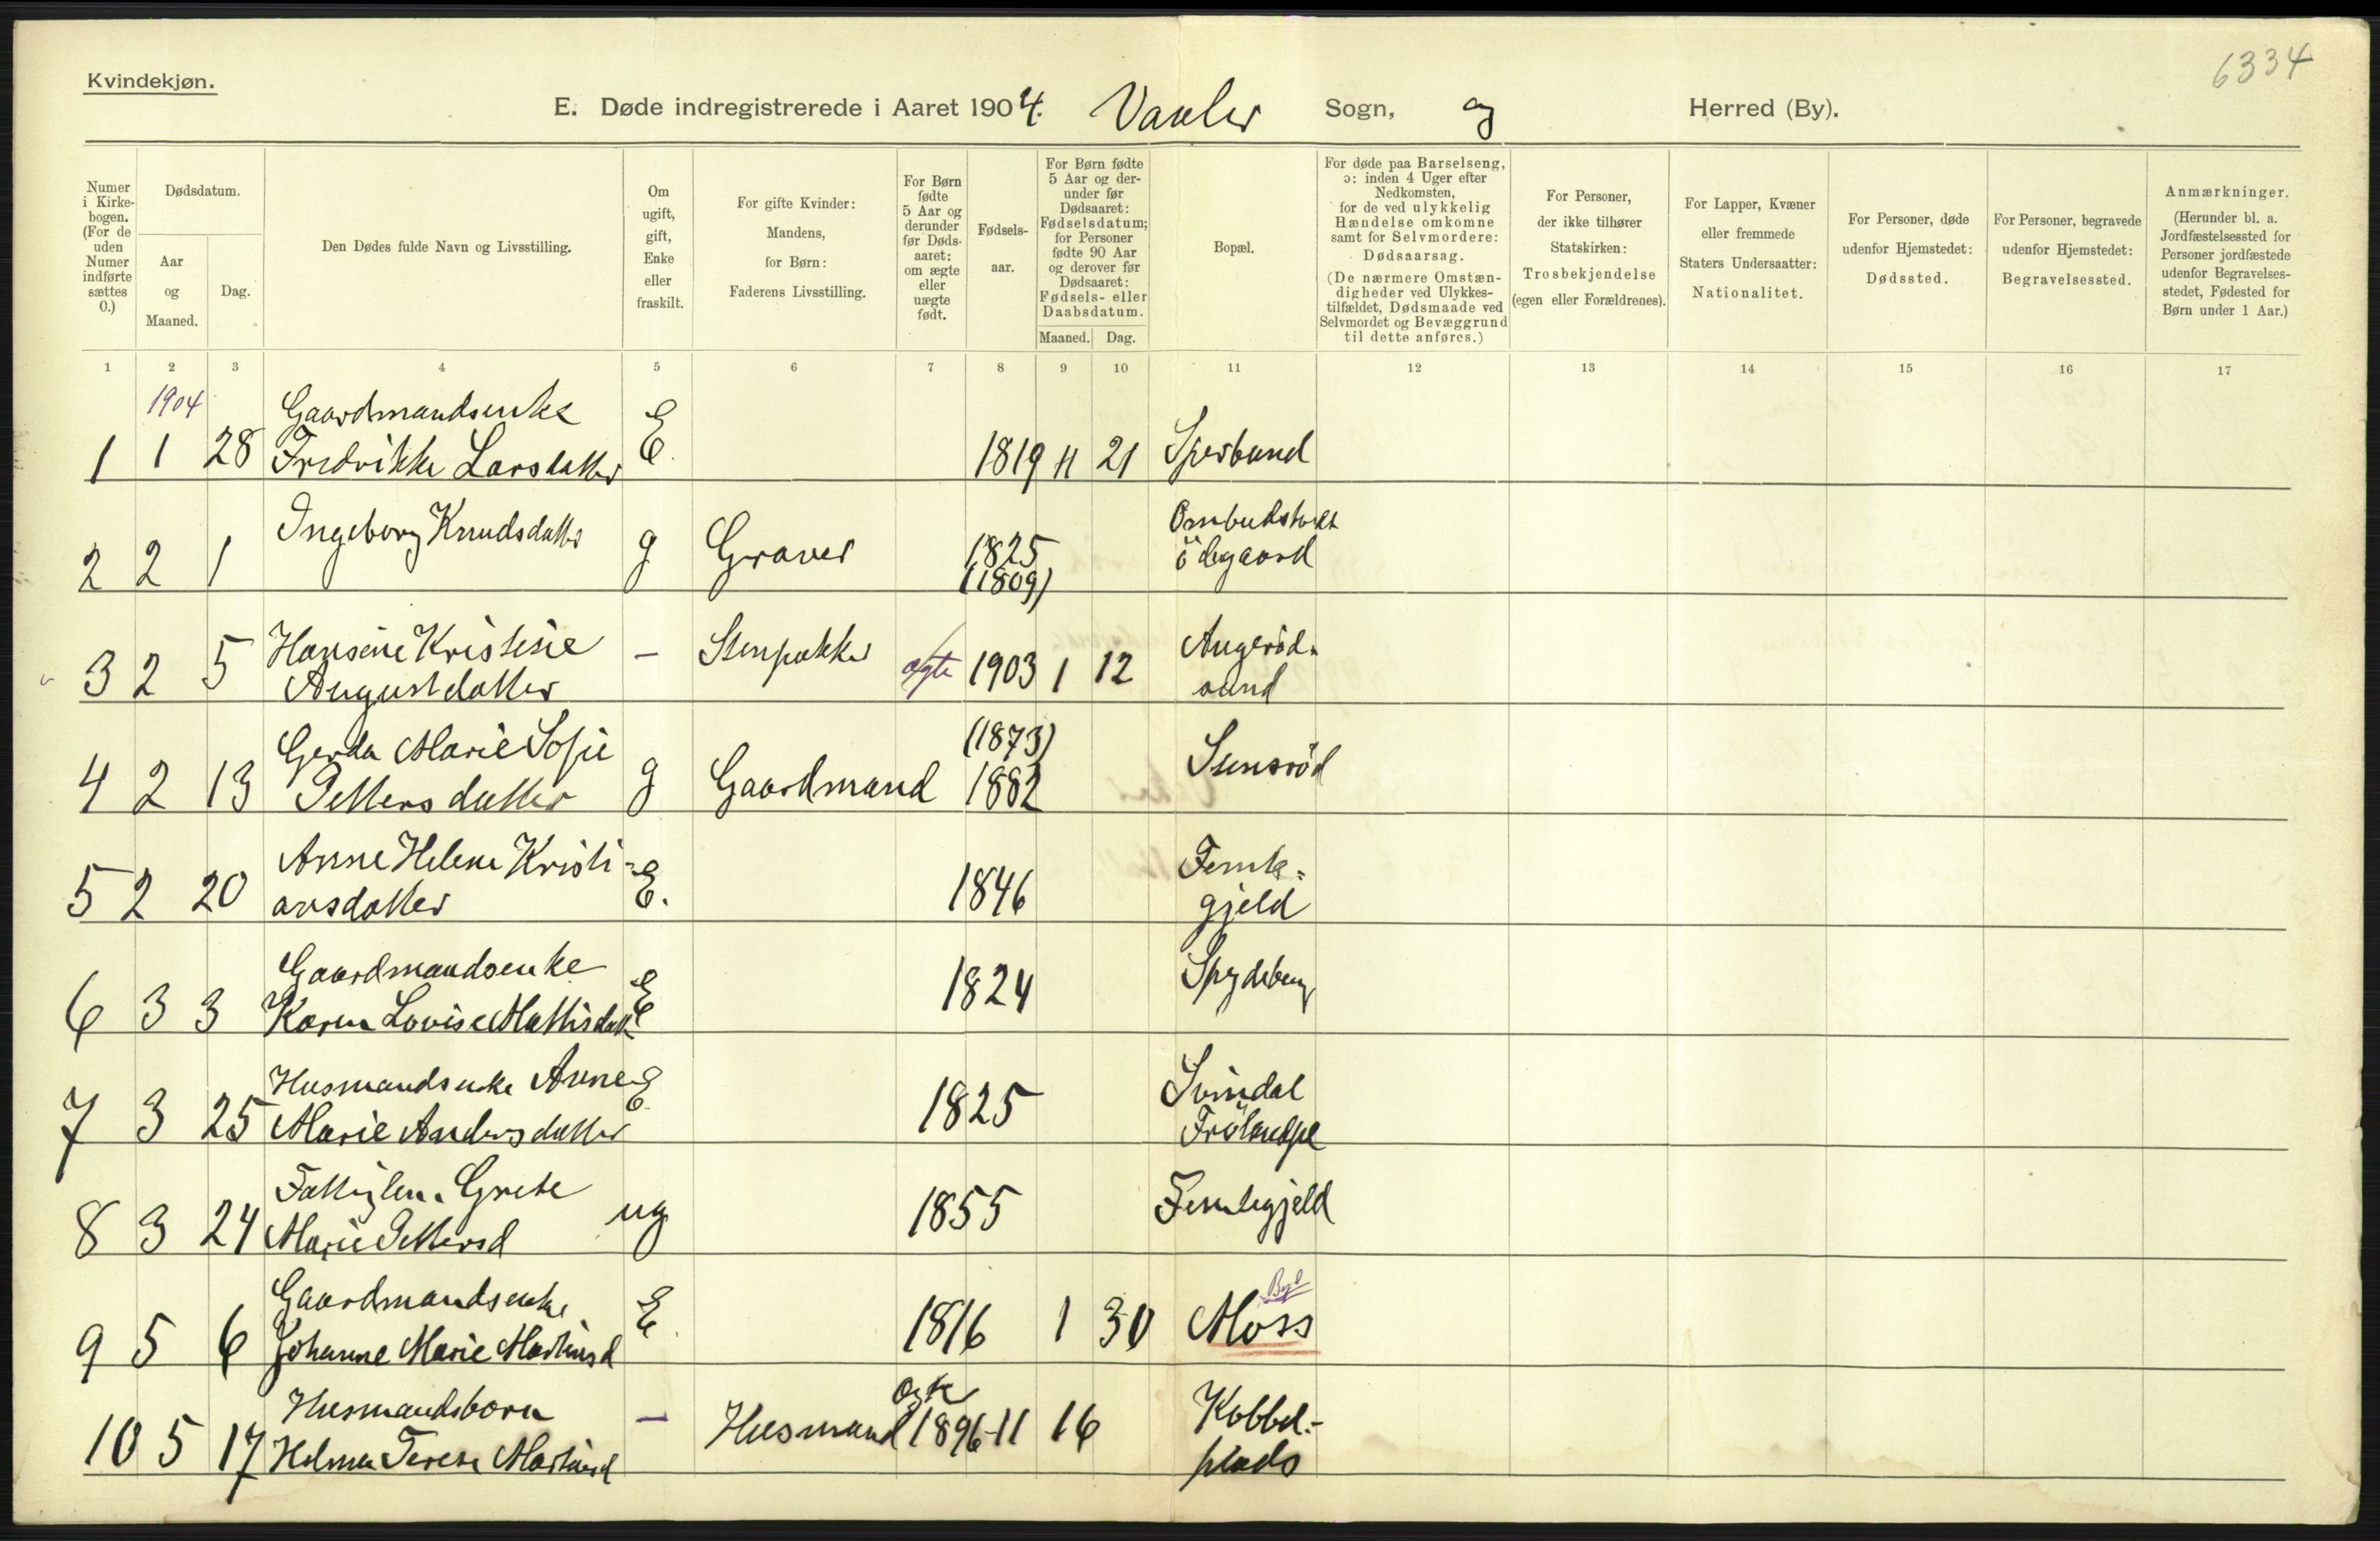 6334
Kvindekjøn.
E. Døde indregistrerede i Aaret 1904. Vaaler Sogn, og Herred (By).
Numer i Kirke-bogen. (For de uden Numer indførte sættes 0.)
Dødsdatum.
Aar og Maaned.
Dag.
Den Dødes fulde Navn og Livsstilling.
Om ugift, gift, Enke eller fraskilt.
For gifte Kvinder: Mandens, for Børn: Faderens Livsstilling.
For Børn fødte 5 Aar og derunder før Døds-aaret: om ægte eller uægte født.
Fødsels-aar.
For Børn fødte 5 Aar og der-under før Dødsaaret: Fødselsdatum; for Personer fødte 90 Aar og derover før Dødsaaret: Fødsels- eller Daabsdatum.
Maaned. Dag.
Bopæl.
For døde paa Barselseng, ɔ: inden 4 Uger efter Nedkomsten, for de ved ulykkelig Hændelse omkomne samt for Selvmordere: Dødsaarsag. (De nærmere Omstæn-digheder ved Ulykkes-tilfældet, Dødsmaade ved Selvmordet og Bevæggrund til dette anføres.)
For Personer, der ikke tilhører Statskirken: Trosbekjendelse (egen eller Forældrenes).
For Lapper, Kvæner eller fremmede Staters Undersaatter: Nationalitet.
For Personer, døde udenfor Hjemstedet: Dødssted.
For Personer, begravede udenfor Hjemstedet: Begravelsessted.
Anmærkninger. (Herunder bl. a. Jordfæstelsessted for Personer jordfæstede udenfor Begravelses-stedet, Fødested for Børn under 1 Aar.)
1 2 3 4 5 6 7 8 9 10 11 12 13 14 15 16 17
1904 Gaardmandsenke
1 1 28 Fredrikke Larsdatter E. 1819 11 21 Sperbund
Ingeborg Knudsdatter
2 2 1 g Graver 1825 ödegaard
(1809)
Hansine Kristine – Stenpukker Augeröd-
3 2 5 Augustdatter ægte 1903 1 12 sand
Gerda Marie Sofie (1873) Stensröd
4 2 13 Pettersdatter g Gaardmand 1882
Anne Helene Kristi- Femte-
5 2 20 ansdatter E. 1846 gjeld
Gaardmandsenke Spydeberg
6 3 3 Karen Lovise Mathisdatt E 1824
Husmandsenke Anne E. Svindal
7 3 25 Marie Andersdatter 1825 Frölandpl
Fattiglem. Grete Femtegjeld
8 3 24 Marie Pettersd ug 1855
Gaardmandsenke By
9 5 6 Johanne Marie Martinsd E. 1816 1 30 Moss
Husmandsbarn Ægte Kobbel-
10 5 17 Helma Terese Martinsd – Husmand 1896 11 16 plads